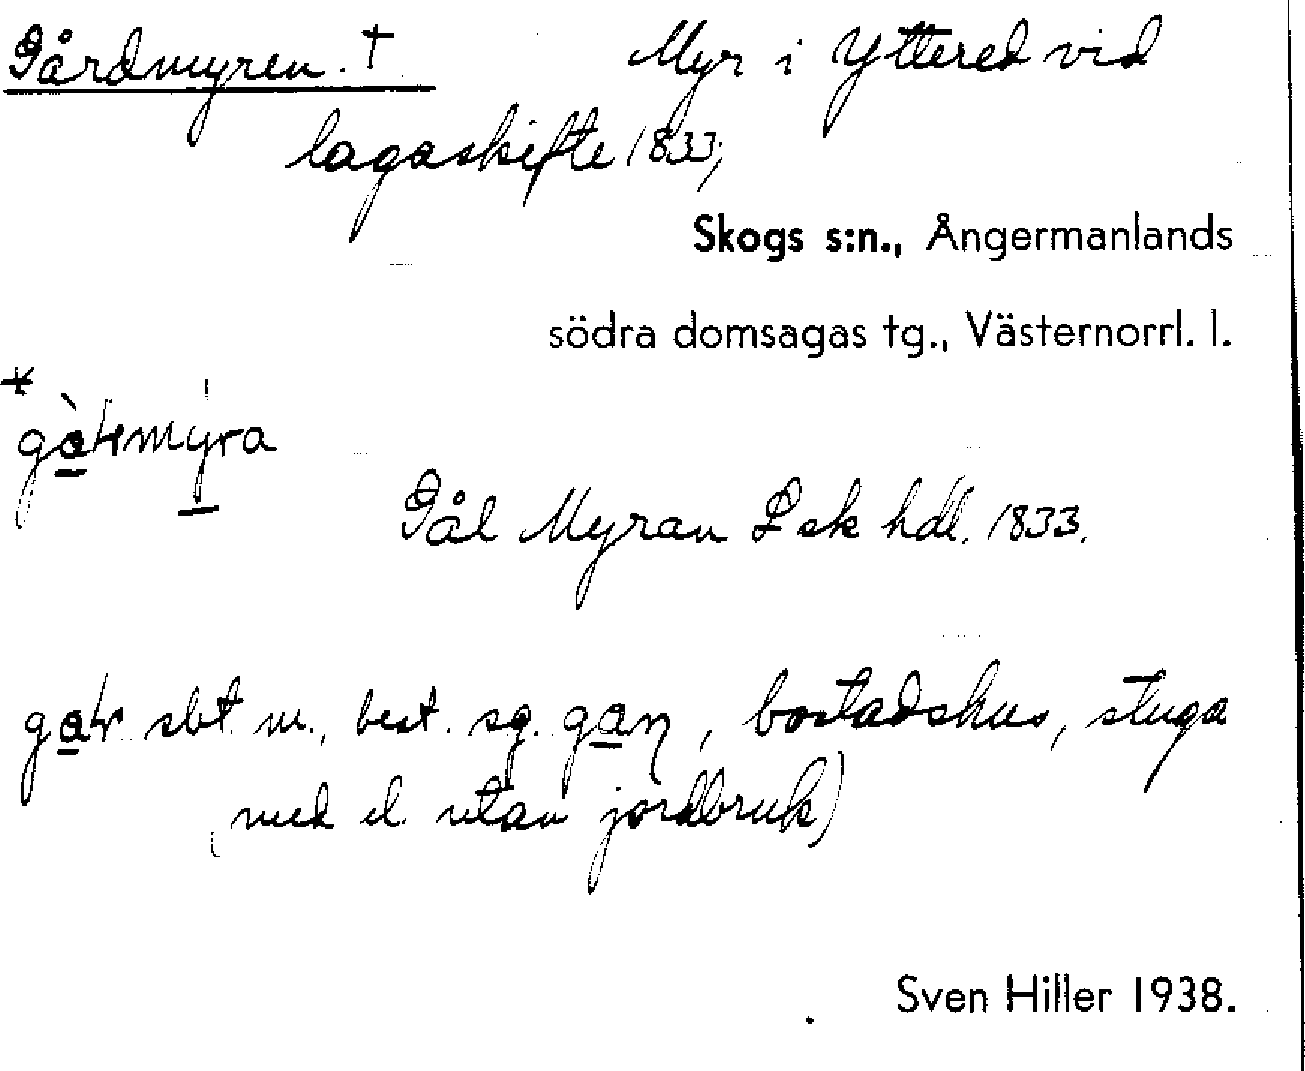 Gårdmyren. † Myr i Yttered vid
lagaskifte 1833;
Skogs s:n., Ångermanlands
södra domsagas tg., Västernorrl. l.
Gål Myran Lsk hdl. 1833.
sbt. m., best. sg. gan, bostadshus, stuga
(med el. utan jordbruk)
Sven Hiller 1938.